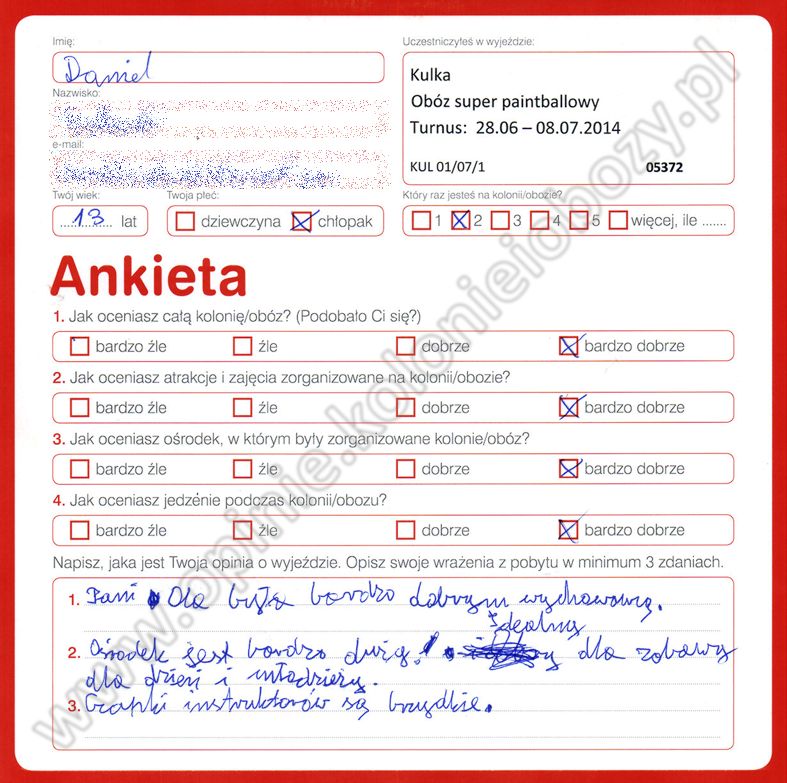 Imię:
Daniel
Nazwisko:
e-mail:
Twój wiek:
13 lat
Twoja płeć:
dziewczyna chłopak
Uczestniczyłeś w wyjeździe:
Kulka
Obóz super paintballowy
Turnus: 28.06 – 08.07.2014
KUL 01/07/1 05372
Który raz jesteś na kolonii/obozie?
1 2 3 4 5 więcej, ile .......
Ankieta
1. Jak oceniasz całą kolonię/obóz? (Podobało Ci się?)
bardzo źle źle dobrze bardzo dobrze
2. Jak oceniasz atrakcje i zajęcia zorganizowane na kolonii/obozie?
bardzo źle źle dobrze bardzo dobrze
3. Jak oceniasz ośrodek, w którym były zorganizowane kolonie/obóz?
bardzo źle źle dobrze bardzo dobrze
4. Jak oceniasz jedzenie podczas kolonii/obozu?
bardzo źle źle dobrze bardzo dobrze
Napisz, jaka jest Twoja opinia o wyjeździe. Opisz swoje wrażenia z pobytu w minimum 3 zdaniach.
1. Pani Ola była bardzo dobrym wychowawcą.
Idealny
2. Ośrodek jest bardzo duży, dla zabawy
dla dzień i młodzieży.
3. Czapki instruktorów są brzydkie.
www.opinie.kolonieiobozy.pl